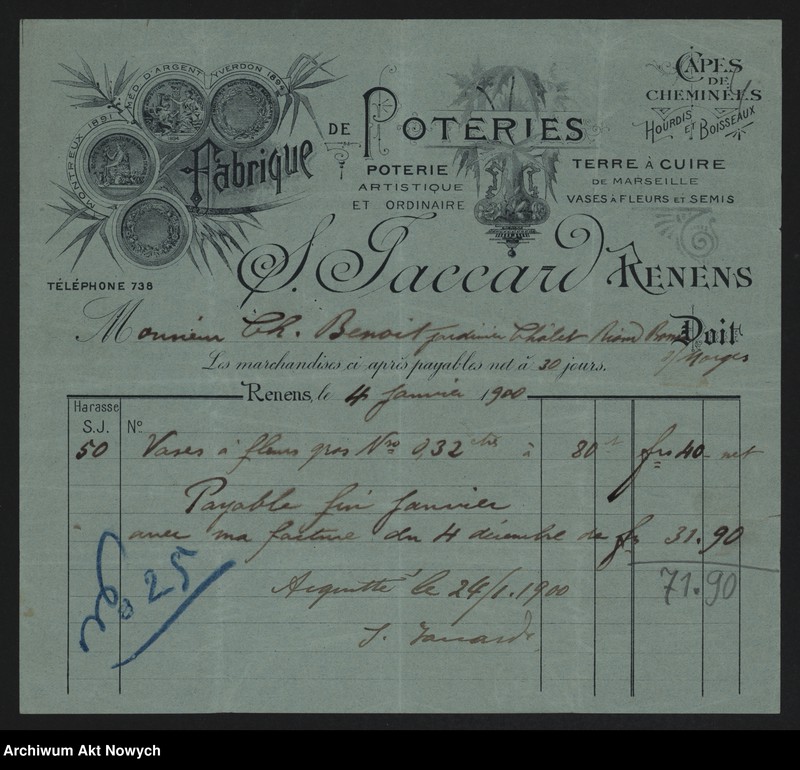 MONTREUX 1891
MÉD. D'ARGENT YVERDON 1894
Fabrique DE POTERIES
POTERIE
ARTISTIQUE
ET ORDINAIRE
CAPES
DE
CHEMINÉES
HOURDIS ET BOISSEAUX
TERRE À CUIRE
DE MARSEILLE
VASES À FLEURS ET SEMIS
TÉLÉPHONE 738
S. Jaccard RENENS
Monsieur Ch. Benoit jardinier Châlet Riond Doit
s/Morges
Les marchandises ci après payables net à 30 jours.
Renens, le 4 Janvier 1900
Harasse
S.J. No
50 Vases à fleurs gros Nro 0,32 ctis à 80 ct frs 40 - net
Payable fin Janvier
avec ma facture du 4 décembre de fr 31.90
71.90
Acquitté le 24/1. 1900
S. Jaccard
No 25
Archiwum Akt Nowych